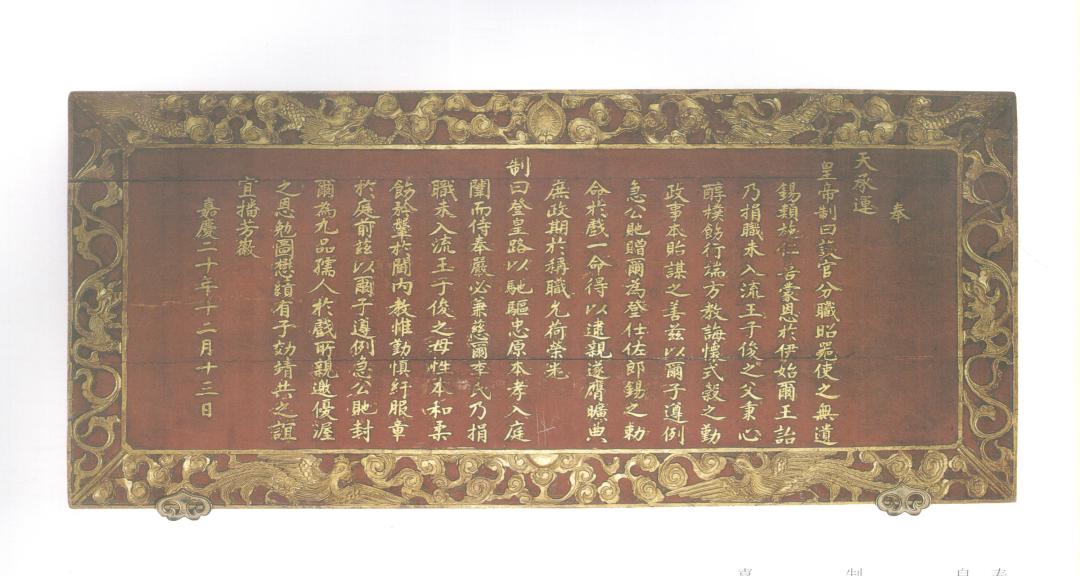 奉
天承運
皇帝制曰設官分職昭器使之無遺
錫類施仁普蒙恩於伊始爾王詒
乃捐職未入流王子後之父秉心
醇樸飭行端方教誨懷式穀之勤
政事本貽謀之善茲以爾子遵例
急公貤贈爾為登仕佐郎錫之勅
命於戲一命得以逮親遂膺曠典
庶政期於稱職允荷榮光
制曰登皇路以馳驅忠原本孝入庭
闈而侍奉嚴必兼慈爾李氏乃捐
職未入流王子後之母性本和柔
飭於鞶於閫内教惟勤慎紆服章
於庭前茲以爾子遵例急公貤封
爾為九品孺人於戲所親邀優渥
之恩勉圖懋績有子効靖共之誼
宜播芳徽
嘉慶二十年十二月十三日